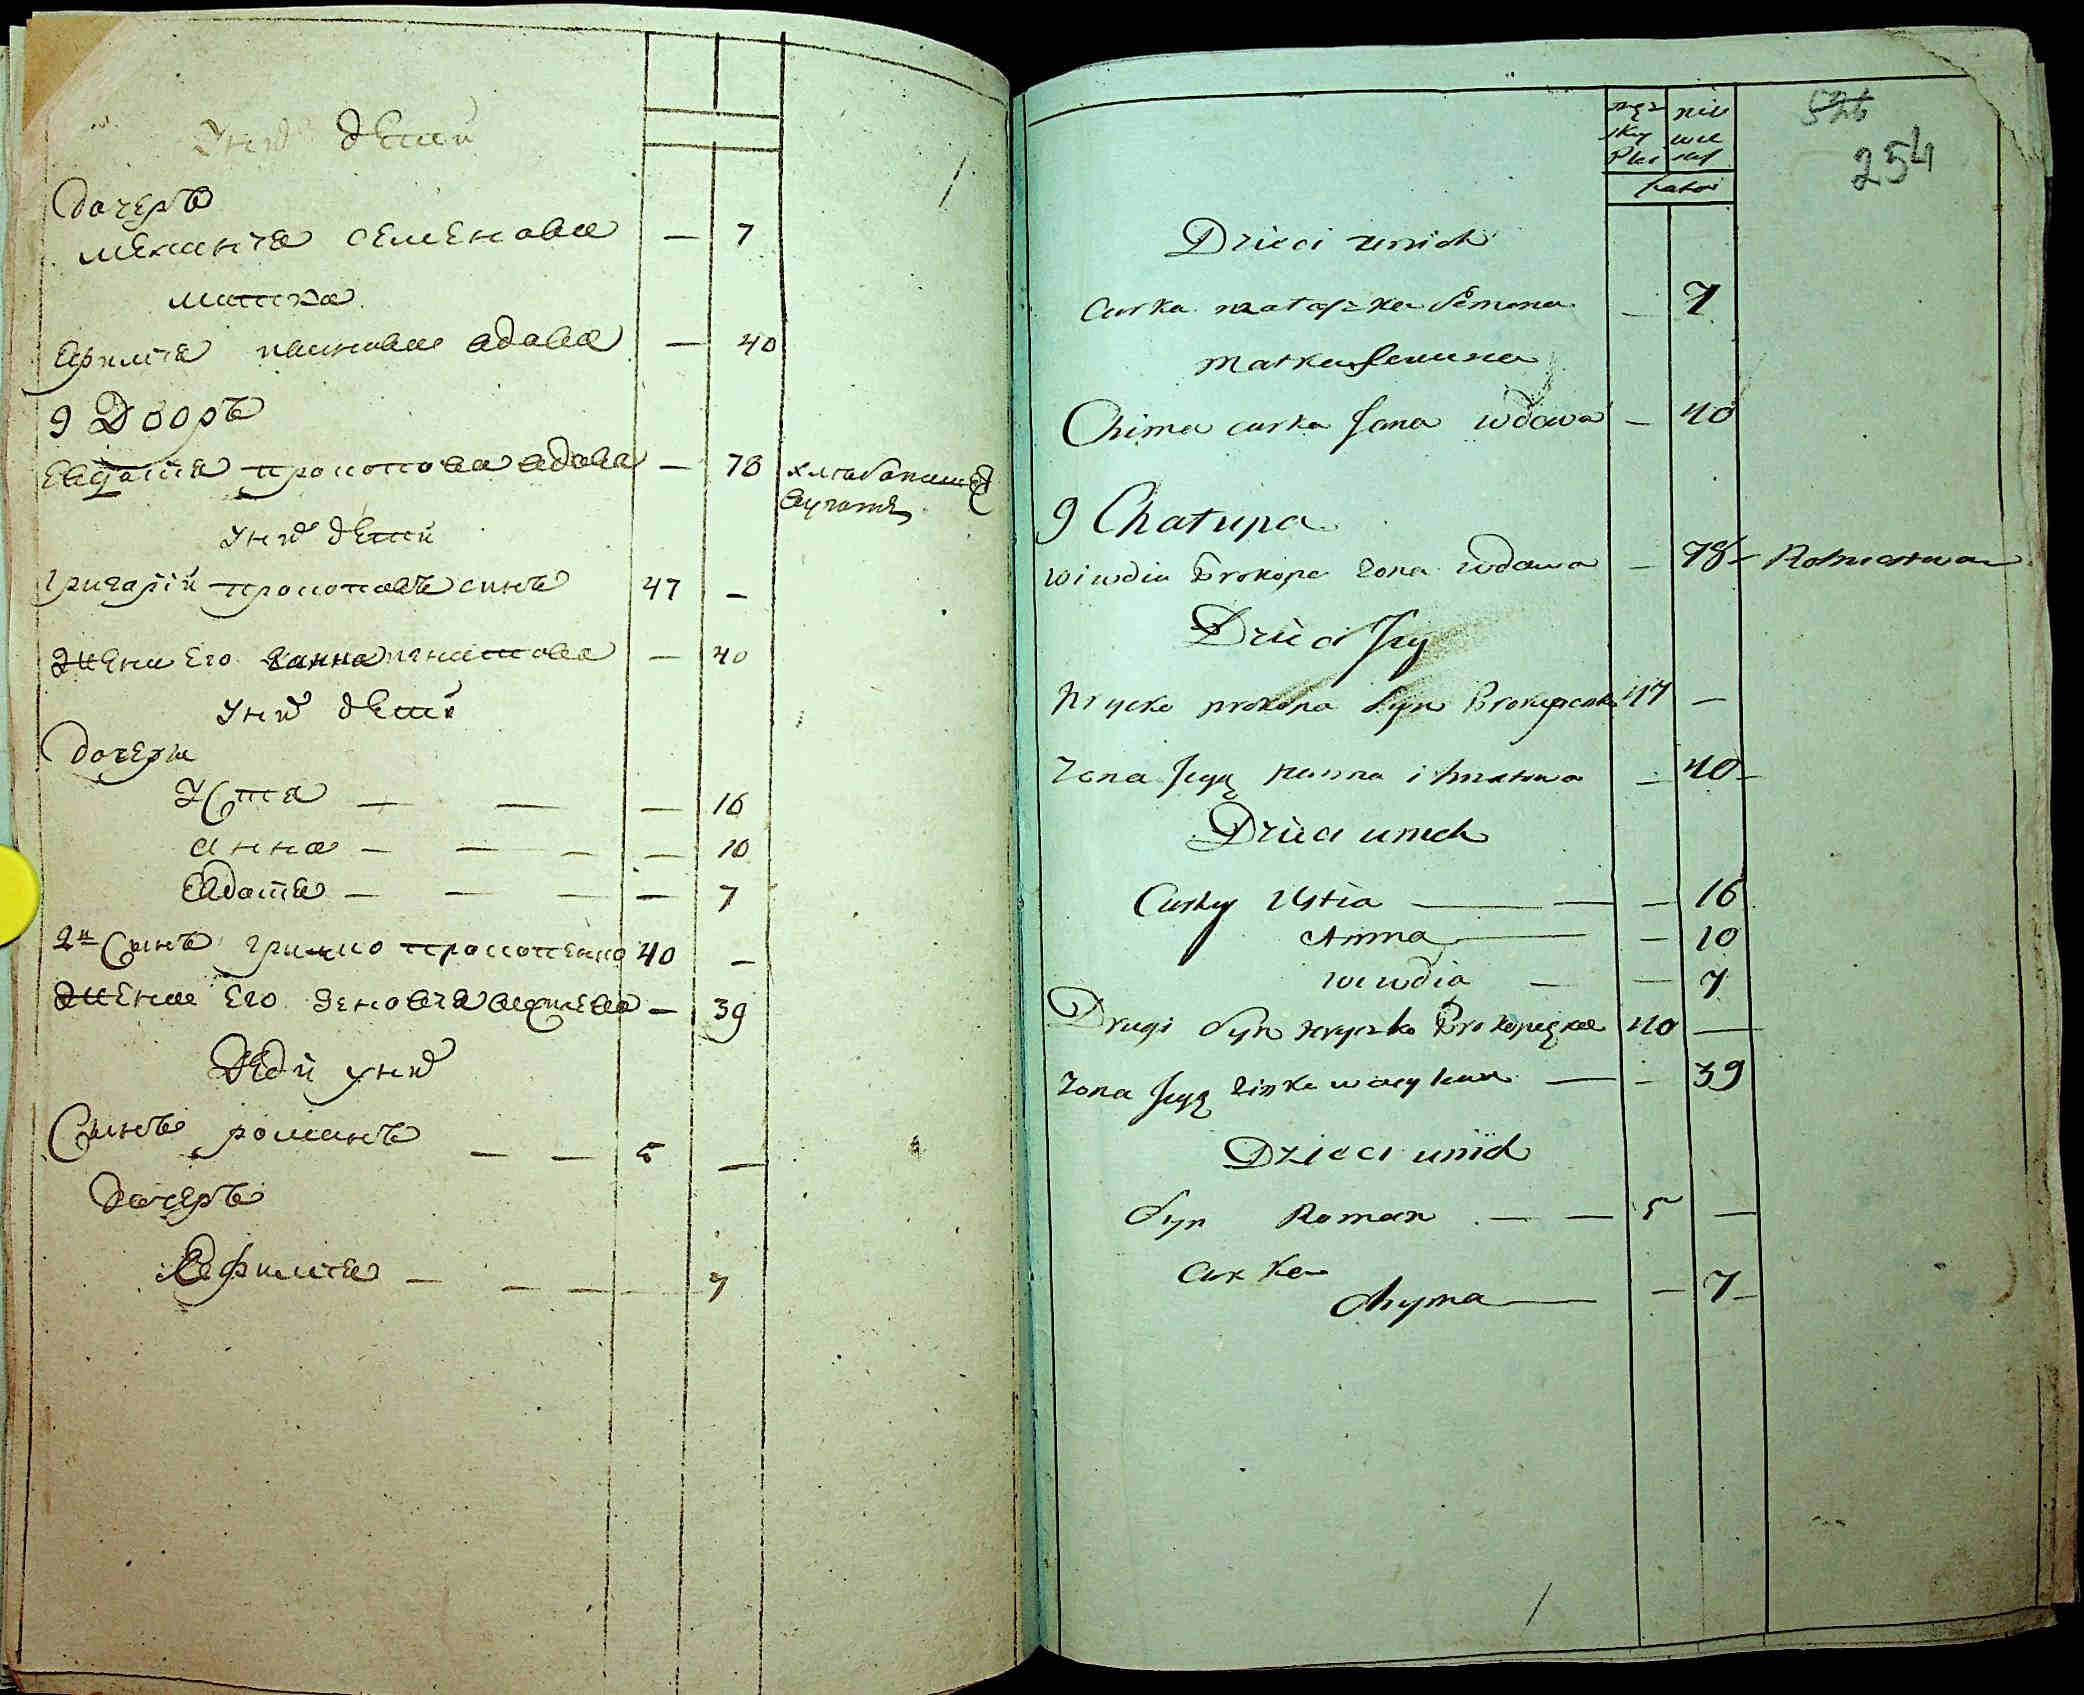 У них дети
дочеръ
меланія семенова — 7
матка
Ефимія иванова вдова — 40
9 Дворъ
Евдокія прокопова вдова — 78
У них дети
григарій прокоповъ синъ 47 —
Жена его ганна игнатова — 40
У них дети
дочери
Устя — — — 16
анна — — — — 10
Евдокія — — — — 7
2й Синъ грицко прокопенко 40 —
Жена его зеновия — 39
Дети у них
Синъ романъ — — 5 —
Дочеръ
Ефимия — — — 7
254
męz kiy Płci
nie wie
Latai
Dzieci unich
Curka małaszka Semena — 7
Matka Semena
Chima curka Jana wdowa — 40
9 Chałupa
Wiwdia Prokopa Żona wdowa — 78 — Rolnictwa
Dzieci Jey
Hrycko prokopa Syn 47 —
Żona Jego Hanna ihnatowa — 40 —
Dzieci unich
Curky Ustia — — — 16
Anna — — 10
Wiwdia — — 7
Drugi Syn Hryczko 40 —
Żona Jego Zinka — — 39
Dzieci unich
Syn Roman — — 5 —
Curka
Chyma — — 7 —